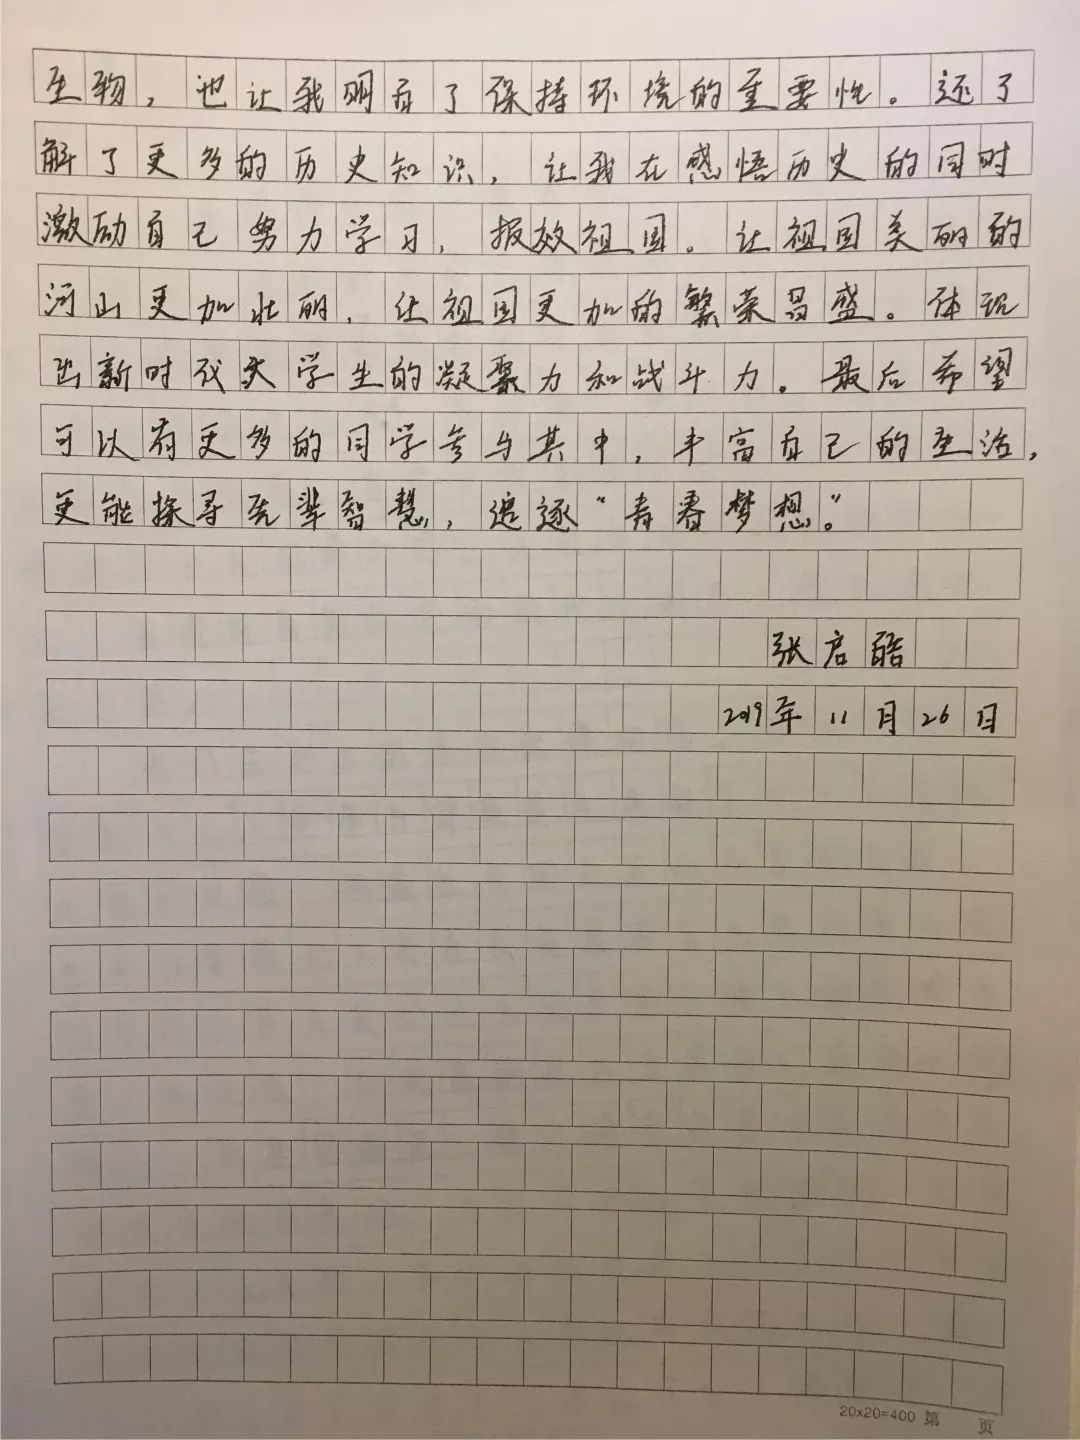 生物，也让我明白了保持环境的重要性。还了
解了更多的历史知识，让我在感悟历史的同时
激励自己努力学习，报效祖国。让祖国美丽的
河山更加壮丽，让祖国更加的繁荣昌盛。体现
出新时代大学生的凝聚力和战斗力。最后希望
可以有更多的同学参与其中，丰富自己的生活，
更能探寻先辈智慧，追逐“青春梦想。”
张启皓
2019年11月26日
20x20=400 第 页